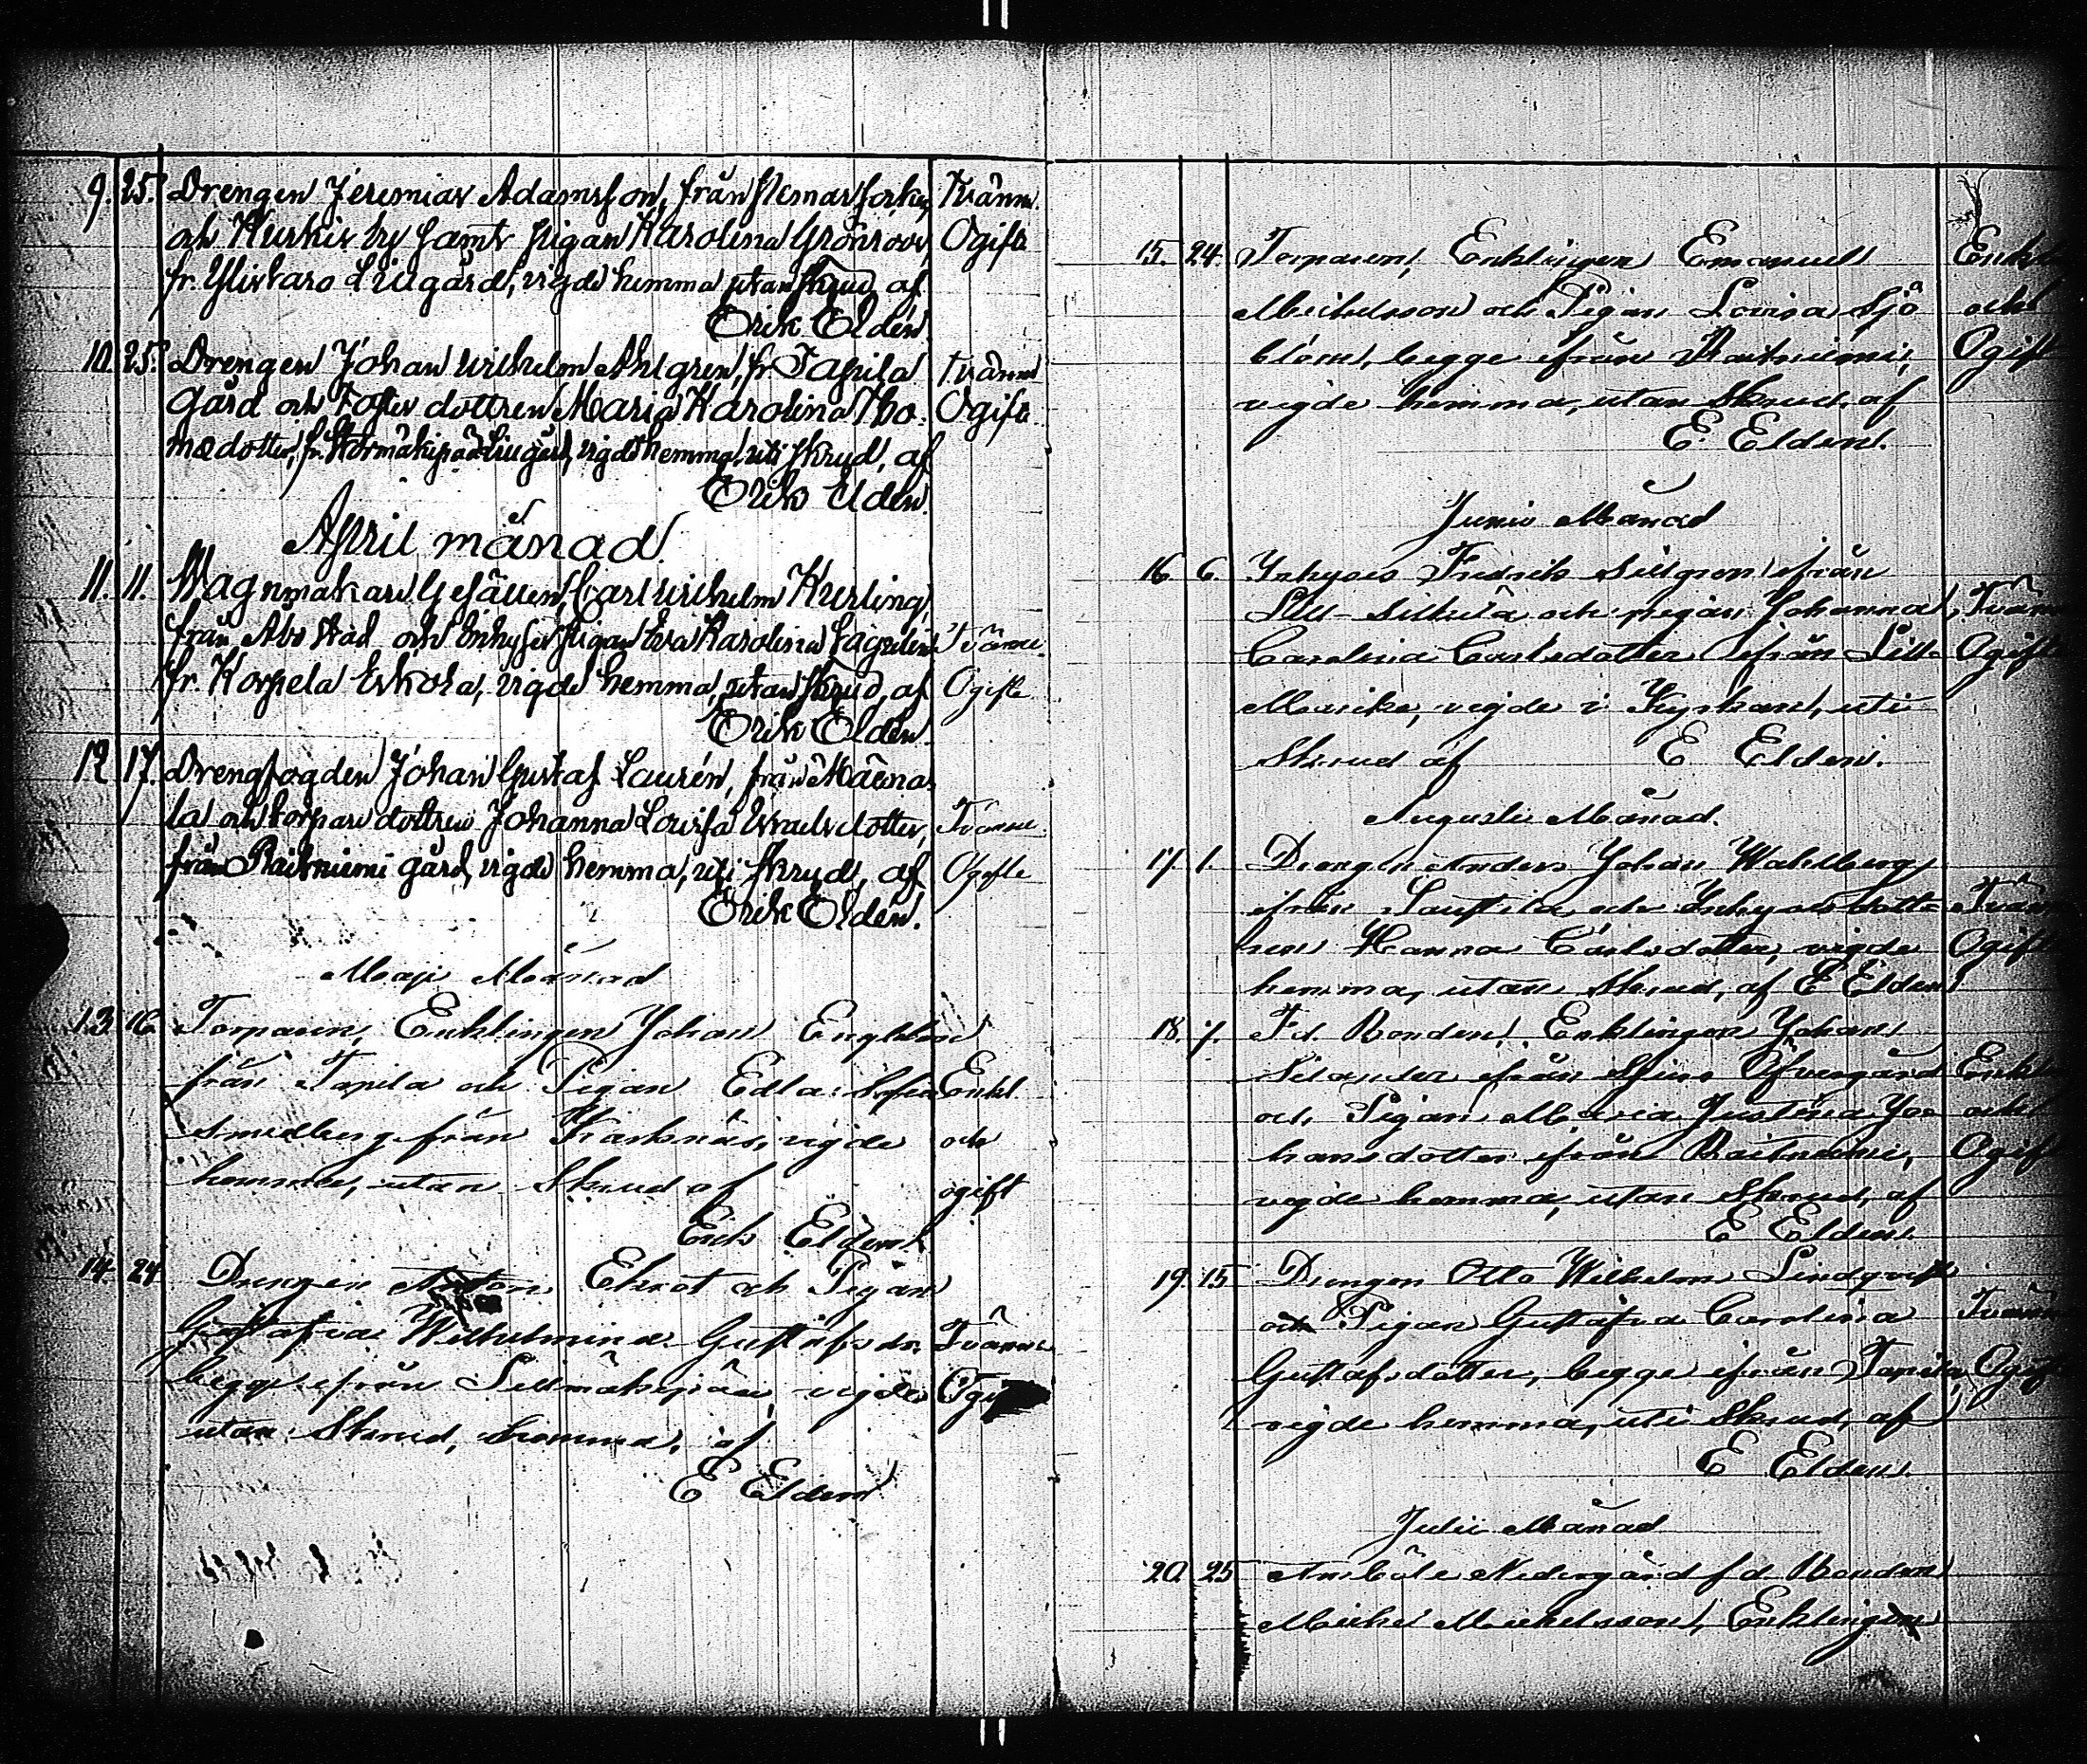 9. 25. Drengen Jeremias Adamsson, från
och Kurkis by samt pigan Karolina Grönroos, Ogifte
fr. Ylistaro Liugård, vigde hemma utan skrud, af
Erik Eldén.
10. 25. Drengen Johan Wilhelm Ahlgren, fr. Tapila Tvänne
Gård och dottren Maria Karolina Tho- Ogifte
madotter, fr. Liugård, vigde hemma, uti skrud, af
Erik Eldén.
April månad
11. 11. Wagnmakare Gesällen, Carl Wilhelm Kurling,
från Åbo stad och Inhyses Pigan Eva Karolina Tvänne
fr. Korpela Eskola, vigde hemma, utan skrud, af Ogifte
Erik Eldén.
12. 17. Drengfogden Johan Gustaf Laurén, från
la och torpare dottren Johanna Lovisa Israelsdotter, Tvänne
från Raitniemi gård, vigde hemma, uti skrud, af Ogifte
Erik Eldén.
Maji Månad
13. 16. Torparen, Enklingen Johan Englund
från Tapila och Pigan Edla Sofia Enkl.
Smedberg från Karknäs, vigde och
hemma, utan Skrud af ogift
Erik Eldén.
14. 24 Drengen Anton Ekrot och Pigan
Gustafva Wilhelmina Gustafsdr. Tvänne
begge ifrån vigde
utan Skrud, hemma, af
E Eldén
15. 24. Torparen, Enklingen Emanuel
Michelsson och Pigan Lovisa Sjö och
blom, begge ifrån Raitniemi, Ogift
vigde hemma, utan Skrud, af
E. Eldén.
Junii Månad
16. 6. Inhyses Fredrik Sillgren ifrån
Lill-Silkilä och pigan Johanna
Carolina Carlsdotter ifrån Lill-
vigde i Kyrkan, uti
Skrud af E Eldén.
Augusti Månad.
17. 1. Drengen Anders Johan Wahlberg
ifrån och Inhyses dott
ren Hanna Carlsdotter, vigde
hemma, utan Skrud, af E Eldén
18. 7. F.d. Bonden, Enklingen Johan
Silander ifrån Öfvergård
och Pigan Maria Justina Jo- och
hansdotter ifrån Raitniemi,
vigde hemma, utan Skrud, af
E Eldén.
19. 15 Drengen Otto Wilhelm Lindqvist
och Pigan Gustafva Carolina
Gustafsdotter, begge ifrån Tapila,
vigde hemma, uti Skrud, af
E Eldén.
Julii Månad
20. 25 Nedergård f.d. Bonden
Michel Michelsson, Enklingen